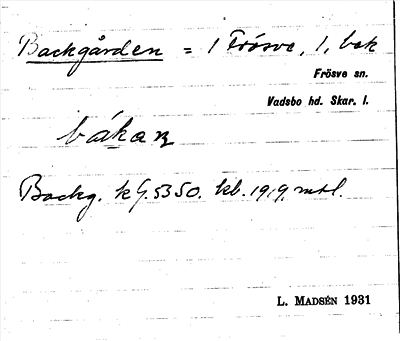 Backgården = 1 Frösve, 1, bek
Frösve sn.
Vadsbo hd. Skar. l.
bákan
Backg. k G. 5350. kb. 1919. mtl.
L. MADSÉN 1931